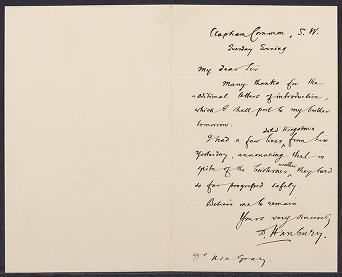 Clapham Common, S. W.
Tuesday Evening
My dear Sir
Many thanks for the
additional letters of introduction,
which I shall post to my brother
tomorrow.
dated Kingstown
I had a few lines from him
yesterday, announcing that in
weather
spite of the boisterous they had
so far progressed safely.
Believe me to remain
Yours very sincerely
D. Hanbury.
Dr Asa Gray